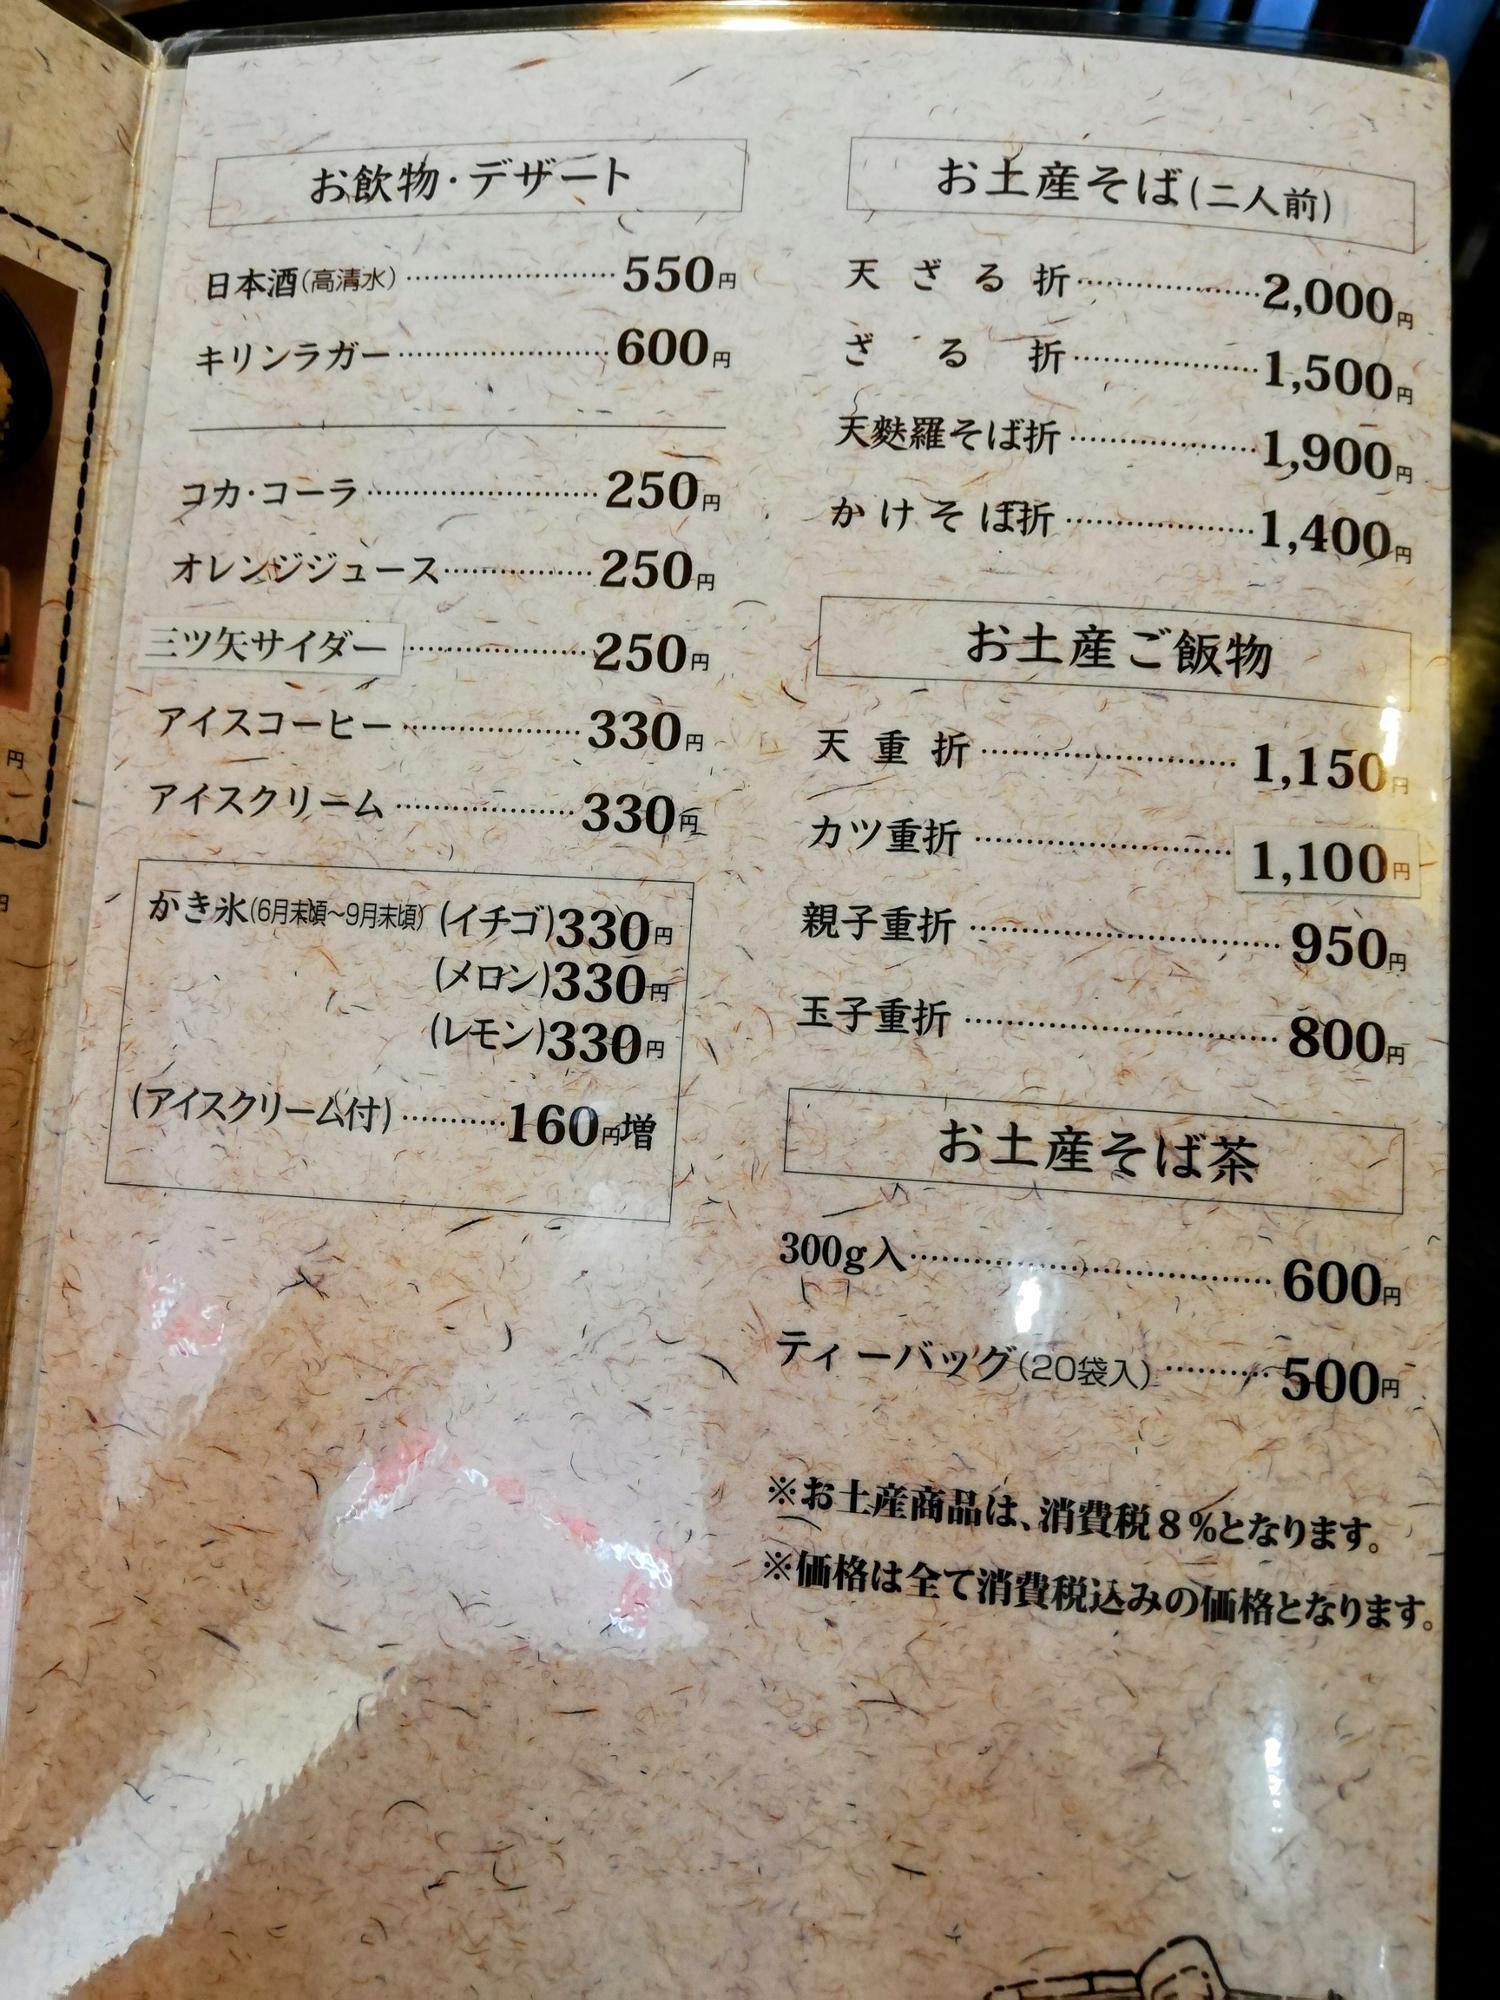 お飲物・デザート
日本酒(高清水)……………550円
キリンラガー……………600円
コカ・コーラ……………250円
オレンジジュース……………250円
三ツ矢サイダー……………250円
アイスコーヒー……………330円
アイスクリーム……………330円
かき氷(6月末頃〜9月末頃)(イチゴ)330円
(メロン)330円
(レモン)330円
(アイスクリーム付)…………160円増
お土産そば(二人前)
天ざる折……………2,000円
ざる折……………1,500円
天麩羅そば折……………1,900円
かけそば折……………1,400円
お土産ご飯物
天重折……………1,150円
カツ重折……………1,100円
親子重折……………950円
玉子重折……………800円
お土産そば茶
300g入……………600円
ティーバッグ(20袋入)…………500円
※お土産商品は、消費税8%となります。
※価格は全て消費税込みの価格となります。
円
円